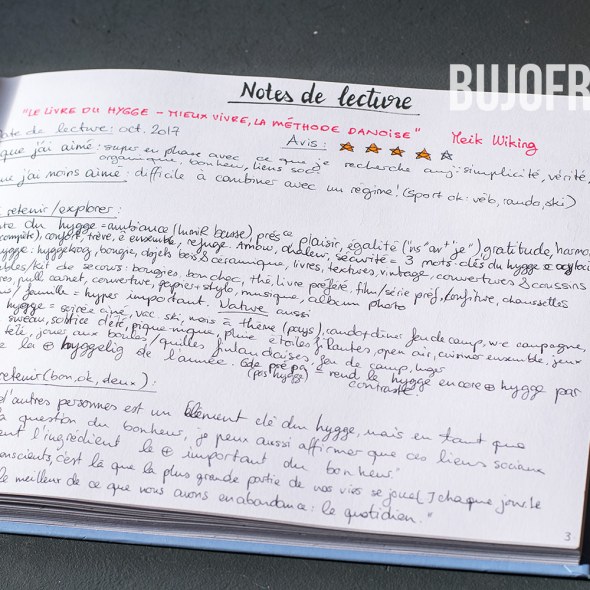 BUJOFR
Notes de lecture
"LE LIVRE DU HYGGE - MIEUX VIVRE, LA MÉTHODE DANOISE" Meik Wiking
ate de lecture: oct. 2017 Avis:
que j'ai aimé: super en phase avec ce que je recherche auj: simplicité, vérité,
organique, bonheur, liens soc.
ue j'ai moins aimé: difficile à combiner avec un régime! (sport ok: vélo, rando, ski)
retenir/explorer:
te du hygge = ambiance (lumière basse) présce plaisir, égalité ("ns" avt "je") gratitude, harmo
complète), confort, trève, è ensemble, refuge. Amour, chaleur, sécurité = 3 mots-clés du hygge
ygge: hyggekrog, bougie, objets bois & céramique, livres, textures, vintage, couvertures & coussins
bles/kit de secours: bougies, bon choc, thé, livre préféré, film/série préf, confiture, chaussettes
res, pull, carnet, couverture, papier + stylo, musique, album photo
famille = hyper important. Nature aussi
hygge = soirée ciné, vac. ski, mais à thème (pays), rando + dîner feu de camp, w-e campagne,
solstice d'été, pique-nique, pluie étoiles filantes, open air, cuisiner ensemble, jeux
été, jouer aux boules/quilles finlandaises, feu de camp, lugs
e la ⊕ hyggelig de l'année. rend le hygge encore ⊕ hygge par
(pas hygge) contraste.
retenir (bon, ok, deux):
d'autres personnes est un élément clé du hygge, mais en tant que
la question du bonheur, je peux aussi affirmer que ces liens sociaux
ent l'ingrédient le ⊕ important du bonheur."
conscients, c'est là que la plus grande partie de nos vies se joue[…] chaque jour. le
le meilleur de ce que nous avons en abondance: le quotidien."
3